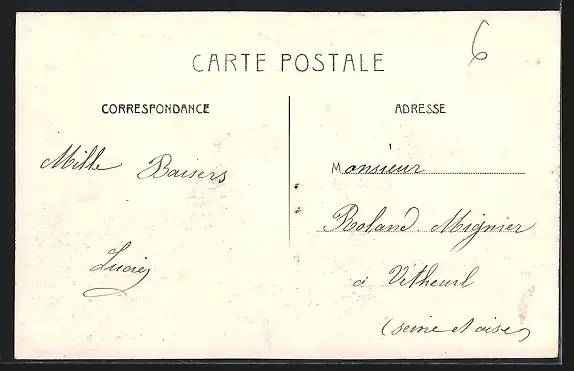 6
CARTE POSTALE
CORRESPONDANCE
ADRESSE
Mille Baisers
Lucie
Monsieur
Roland Mignier
à Vétheuil
(Seine et oise)